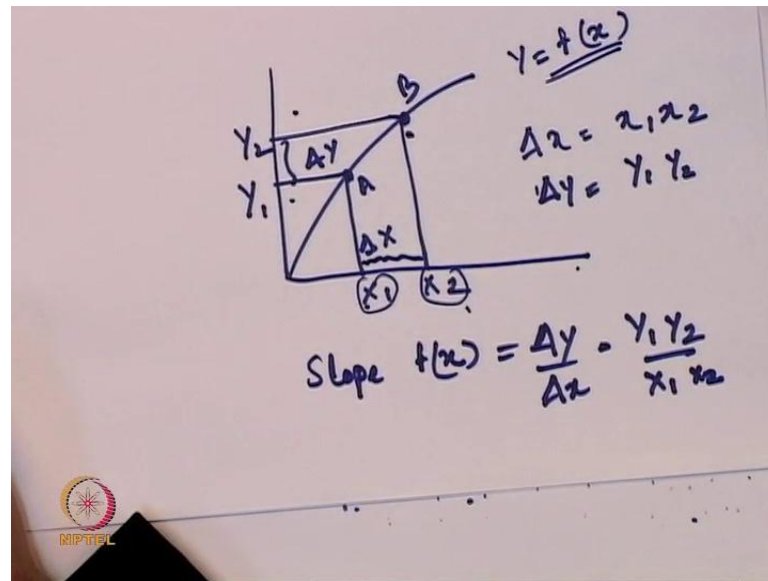 Y = f(x)
B
Y2
ΔY
Δx = x1 x2
Y1
A
ΔY = Y1 Y2
ΔX
X1 X2
Slope f(x) = ΔY/Δx = Y1 Y2/x1 x2
NPTEL